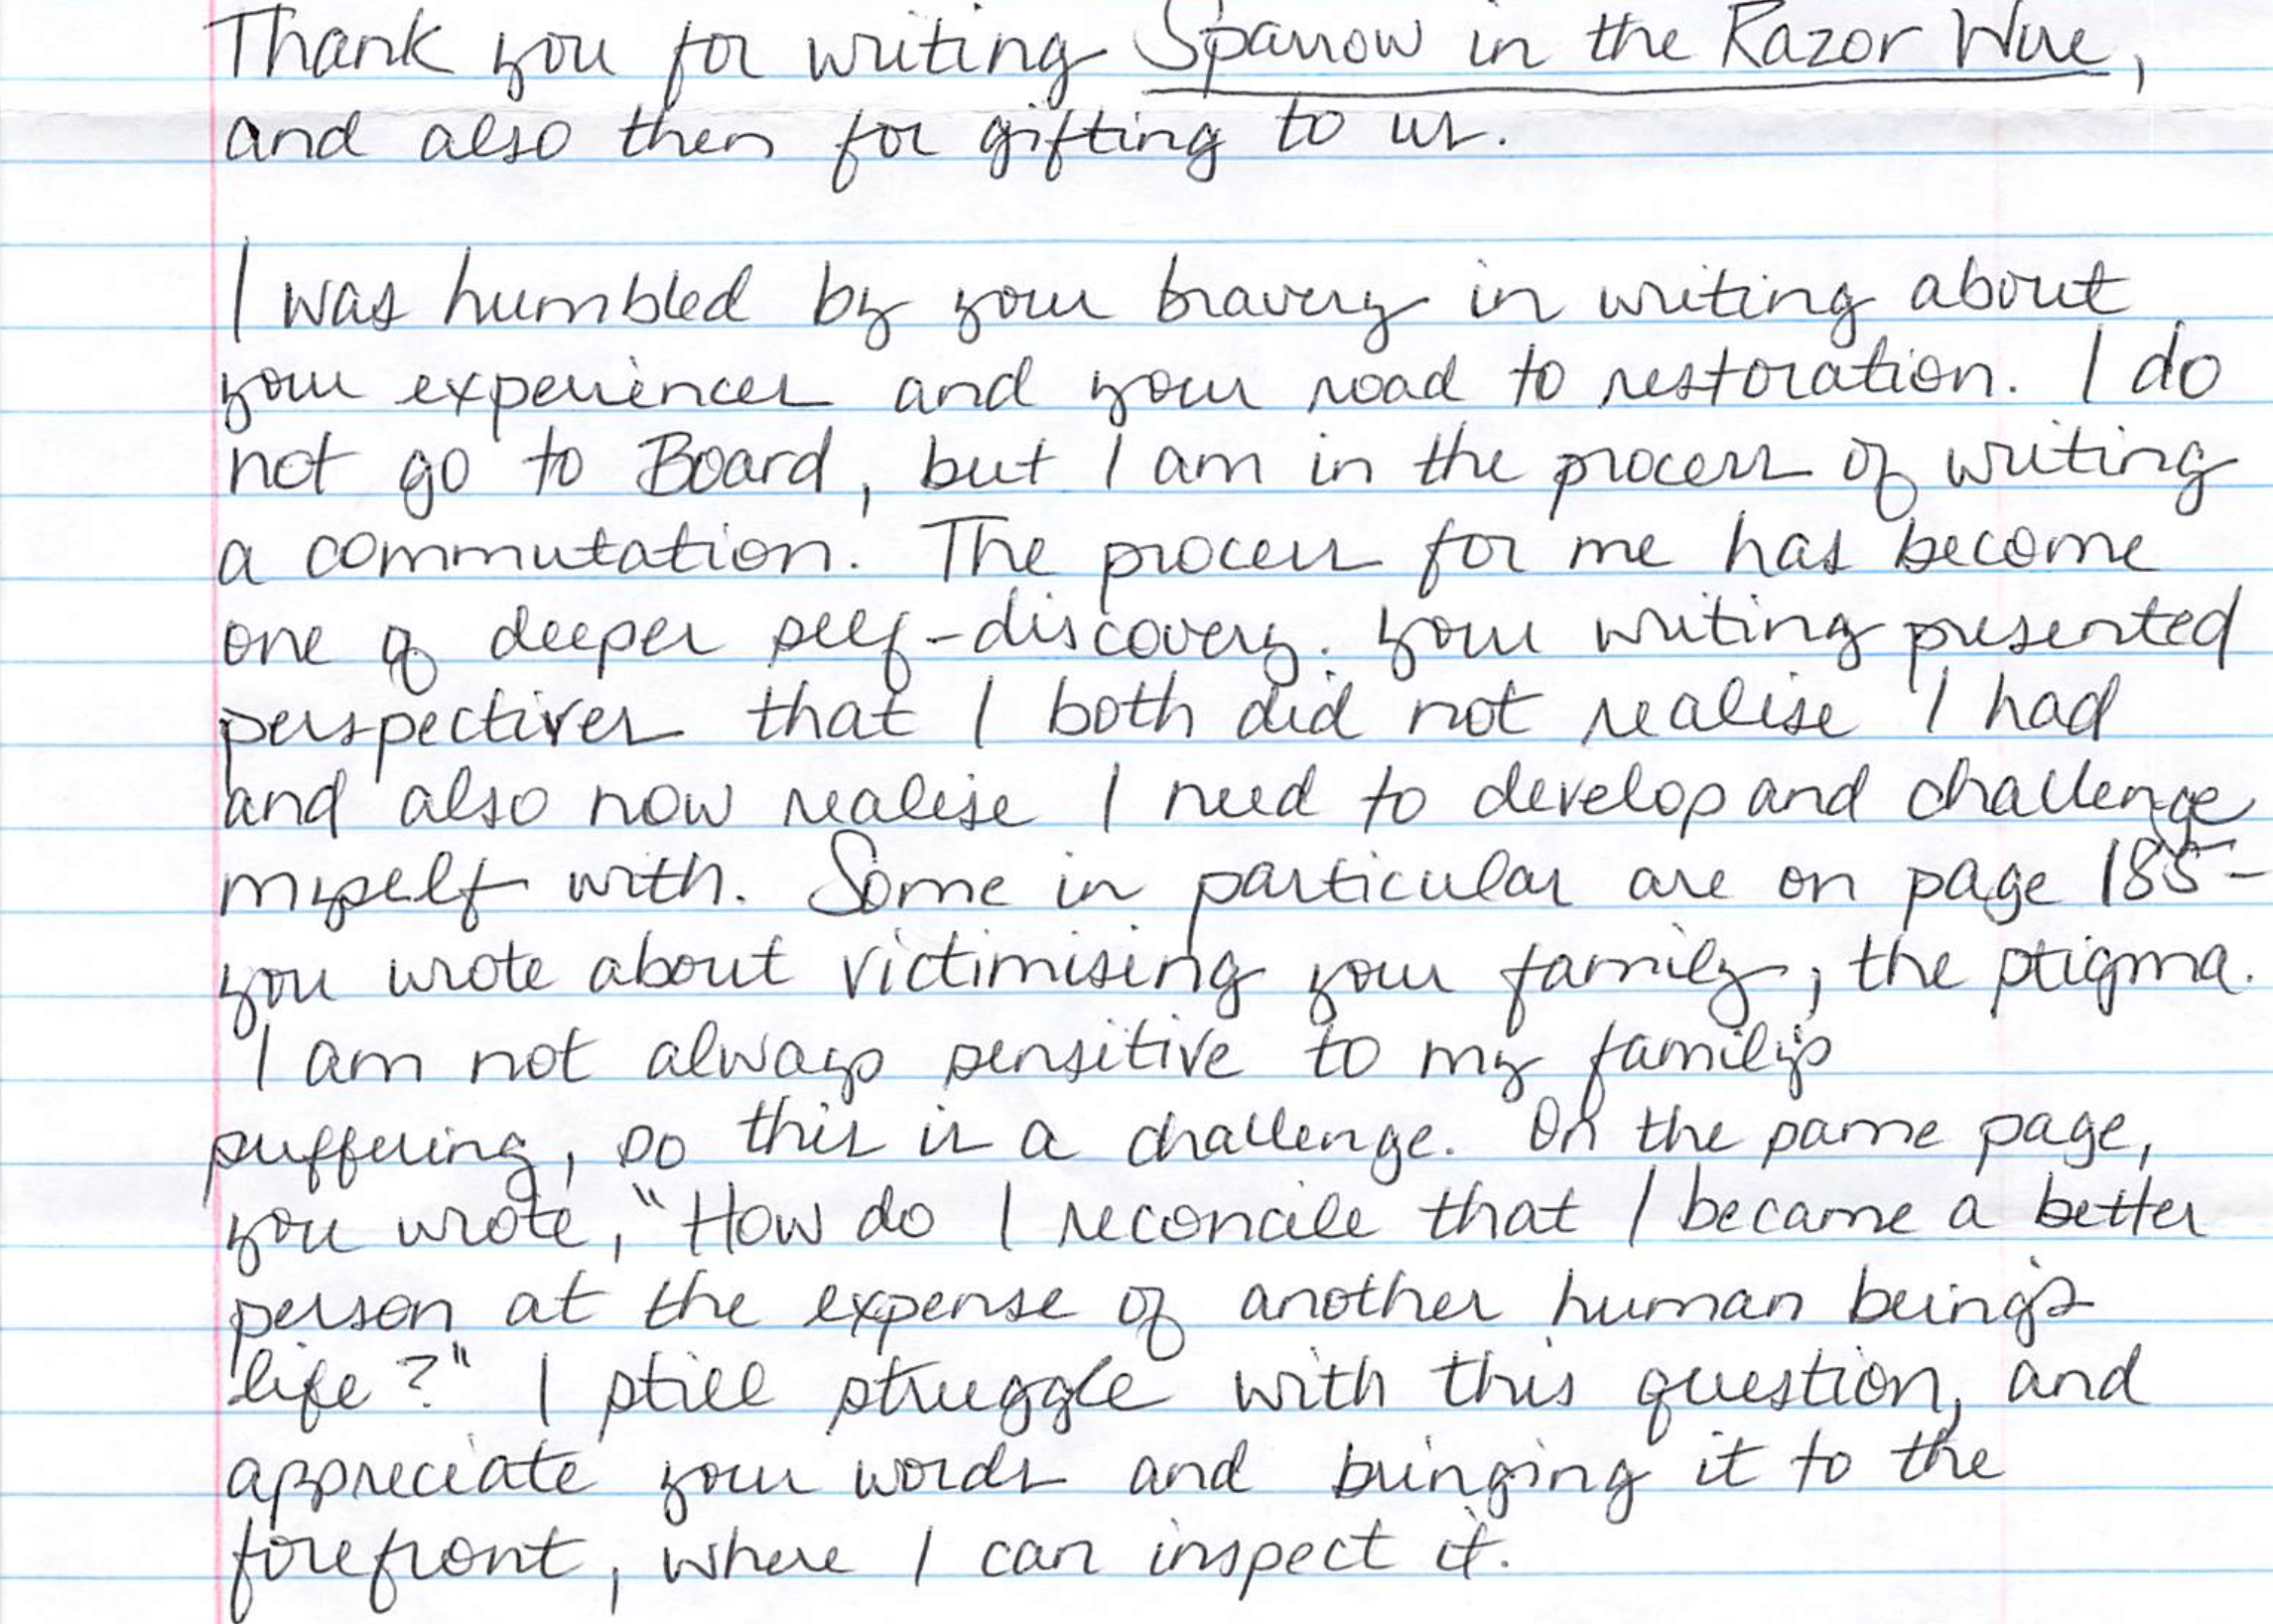 Thank you for writing Sparrow in the Razor Wire,
and also then for gifting to us.
I was humbled by your bravery in writing about
your experiences and your road to restoration. I do
not go to Board, but I am in the process of writing
a commutation. The process for me has become
one of deeper self-discovery. Your writing presented
perspectives that I both did not realise I had
and also now realise I need to develop and challenge
myself with. Some in particular are on page 185-
you wrote about victimising your family, the stigma.
I am not always sensitive to my family's
suffering, so this is a challenge. On the same page,
you wrote, "How do I reconcile that I became a better
person at the expense of another human being's
life?" I still struggle with this question, and
appreciate your words and bringing it to the
forefront, where I can inspect it.